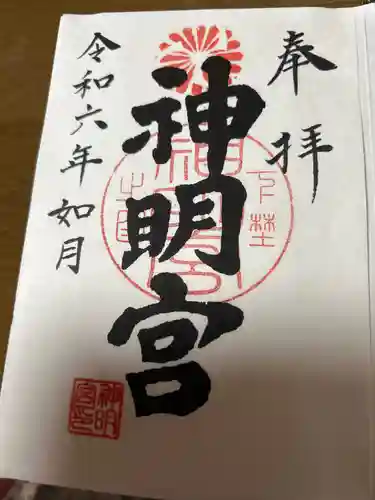 奉拝
神明宮
令和六年如月
下野
神明
宮印